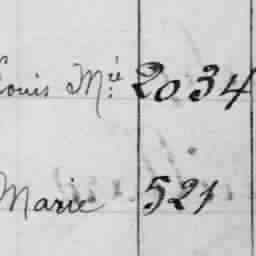 Louis M.ie 2034
Marie 521